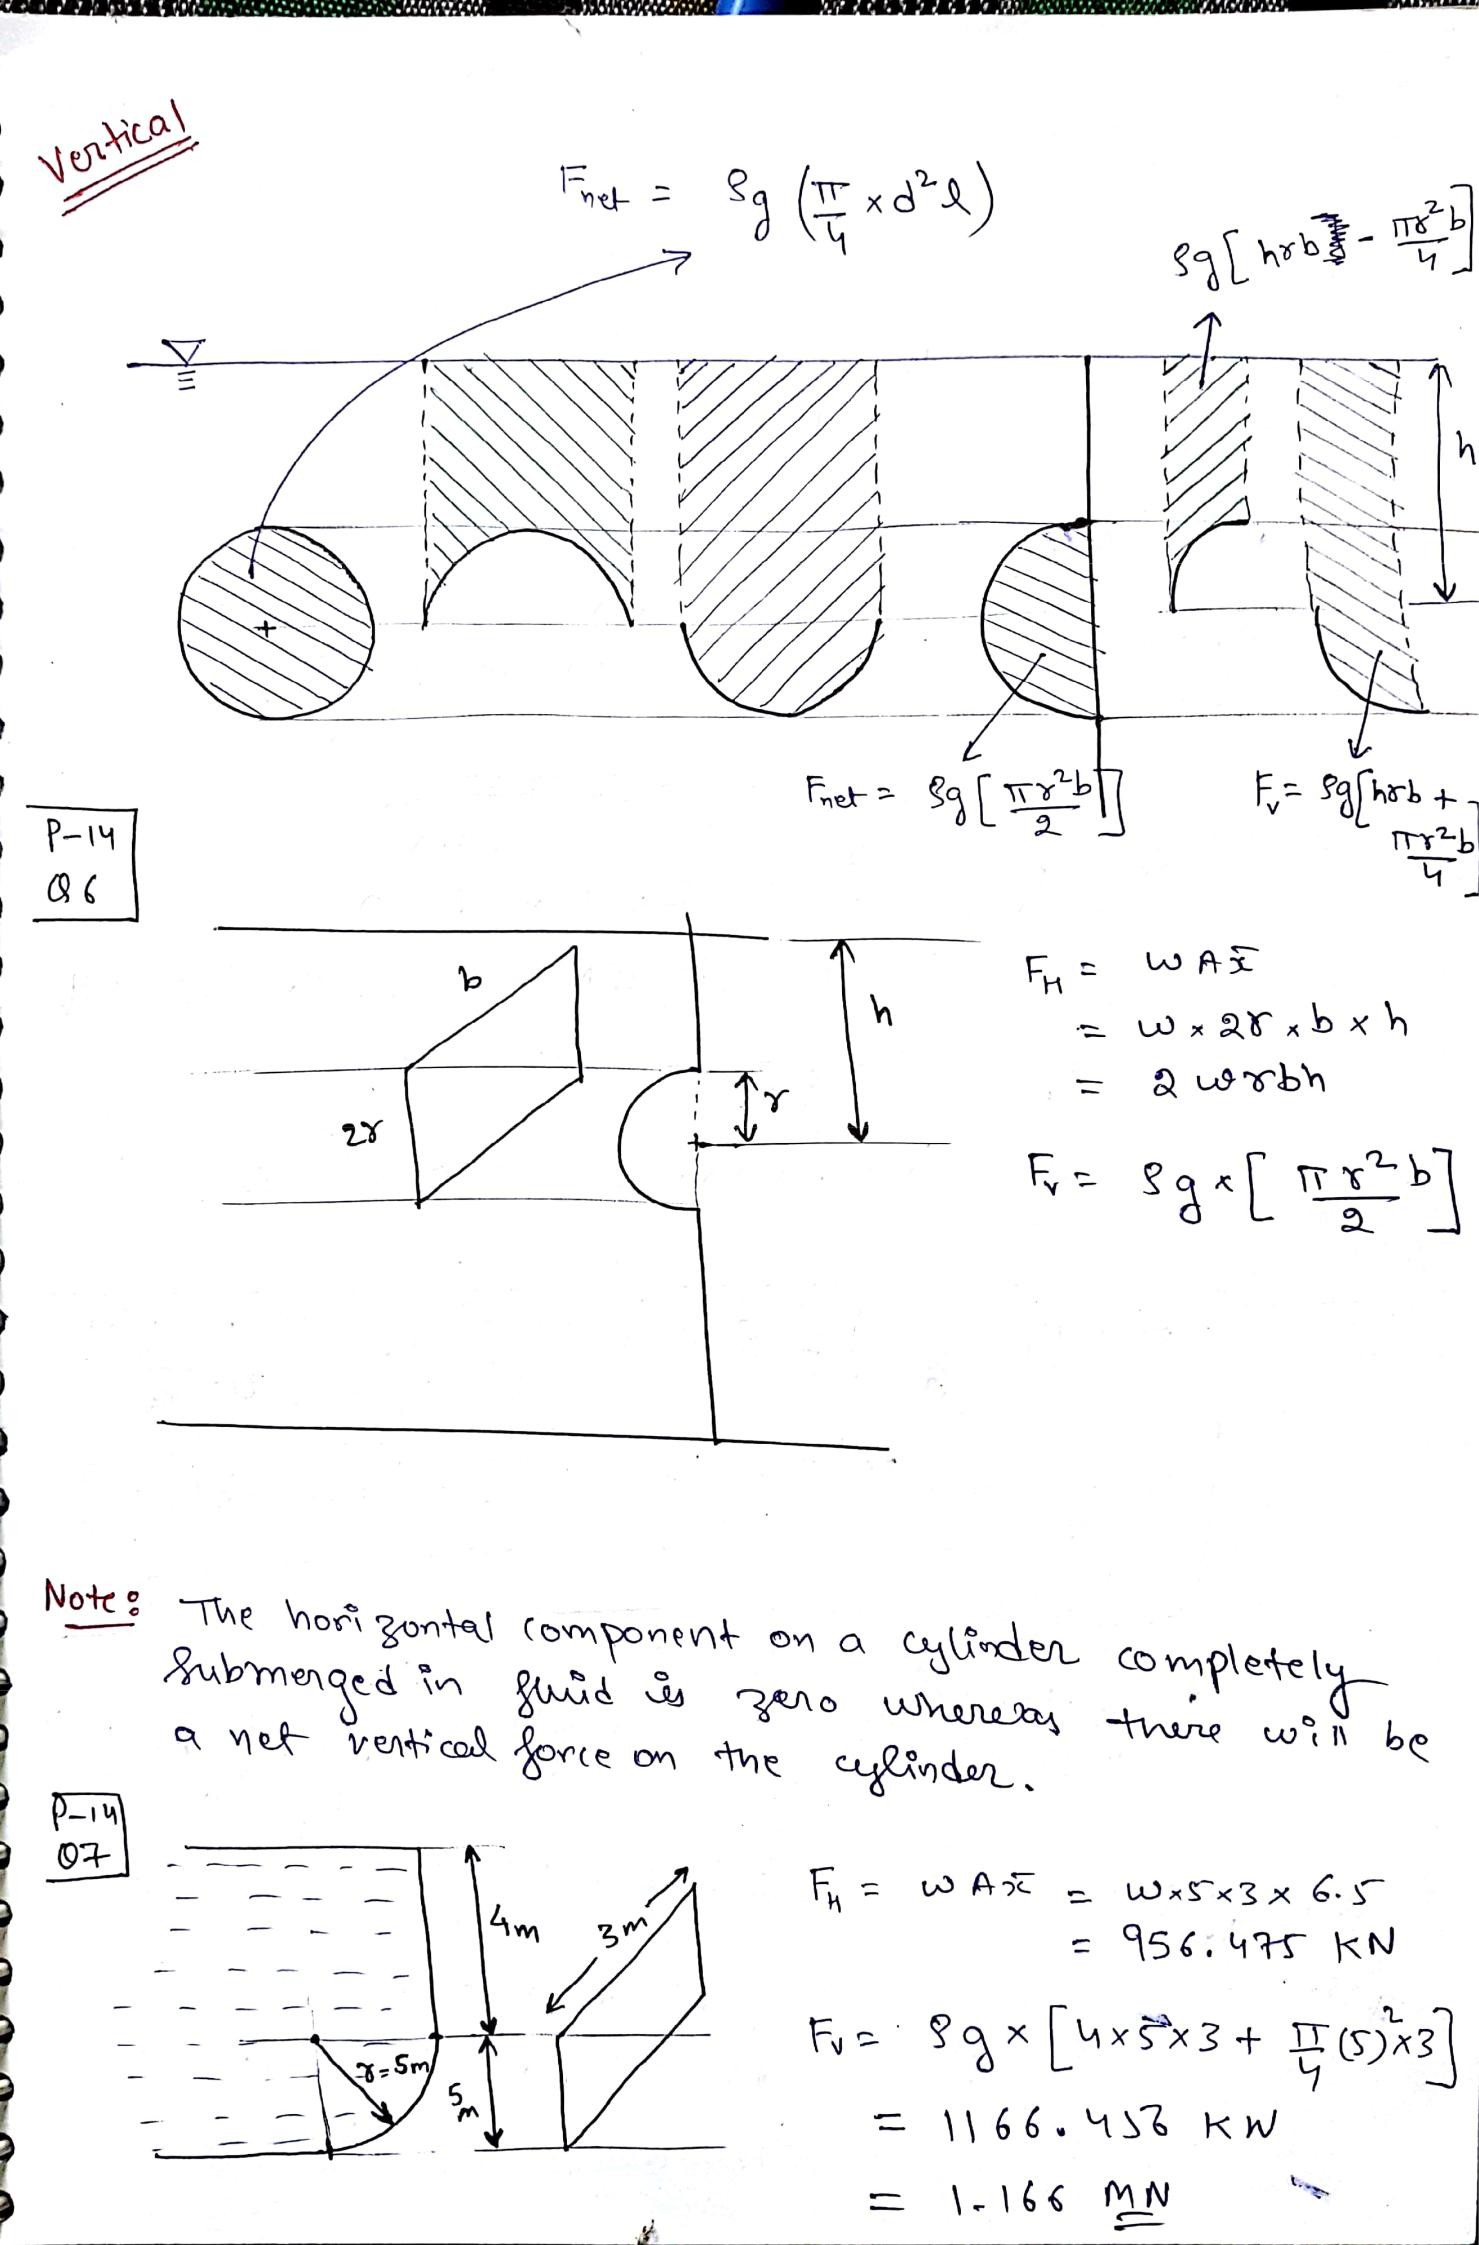 Vertical
Fnet = ρg (π/4 × d²l)
ρg [hrb - πr²b/4]
h
Fnet = ρg [πr²b/2]
Fv = ρg[hrb + πr²b/4]
P-14
Q6
b
h
r
2r
FH = wAx̄
= w × 2r × b × h
= 2wrbh
Fv = ρg × [πr²b/2]
Note: The horizontal component on a cylinder completely
submerged in fluid is zero whereas there will be
a net vertical force on the cylinder.
P-14
Q7
4m
3m
r=5m
5m
FH = wAx̄ = w×5×3×6.5
= 956.475 KN
Fv = ρg × [4×5×3 + π/4 (5)²×3]
= 1166.458 KN
= 1.166 MN